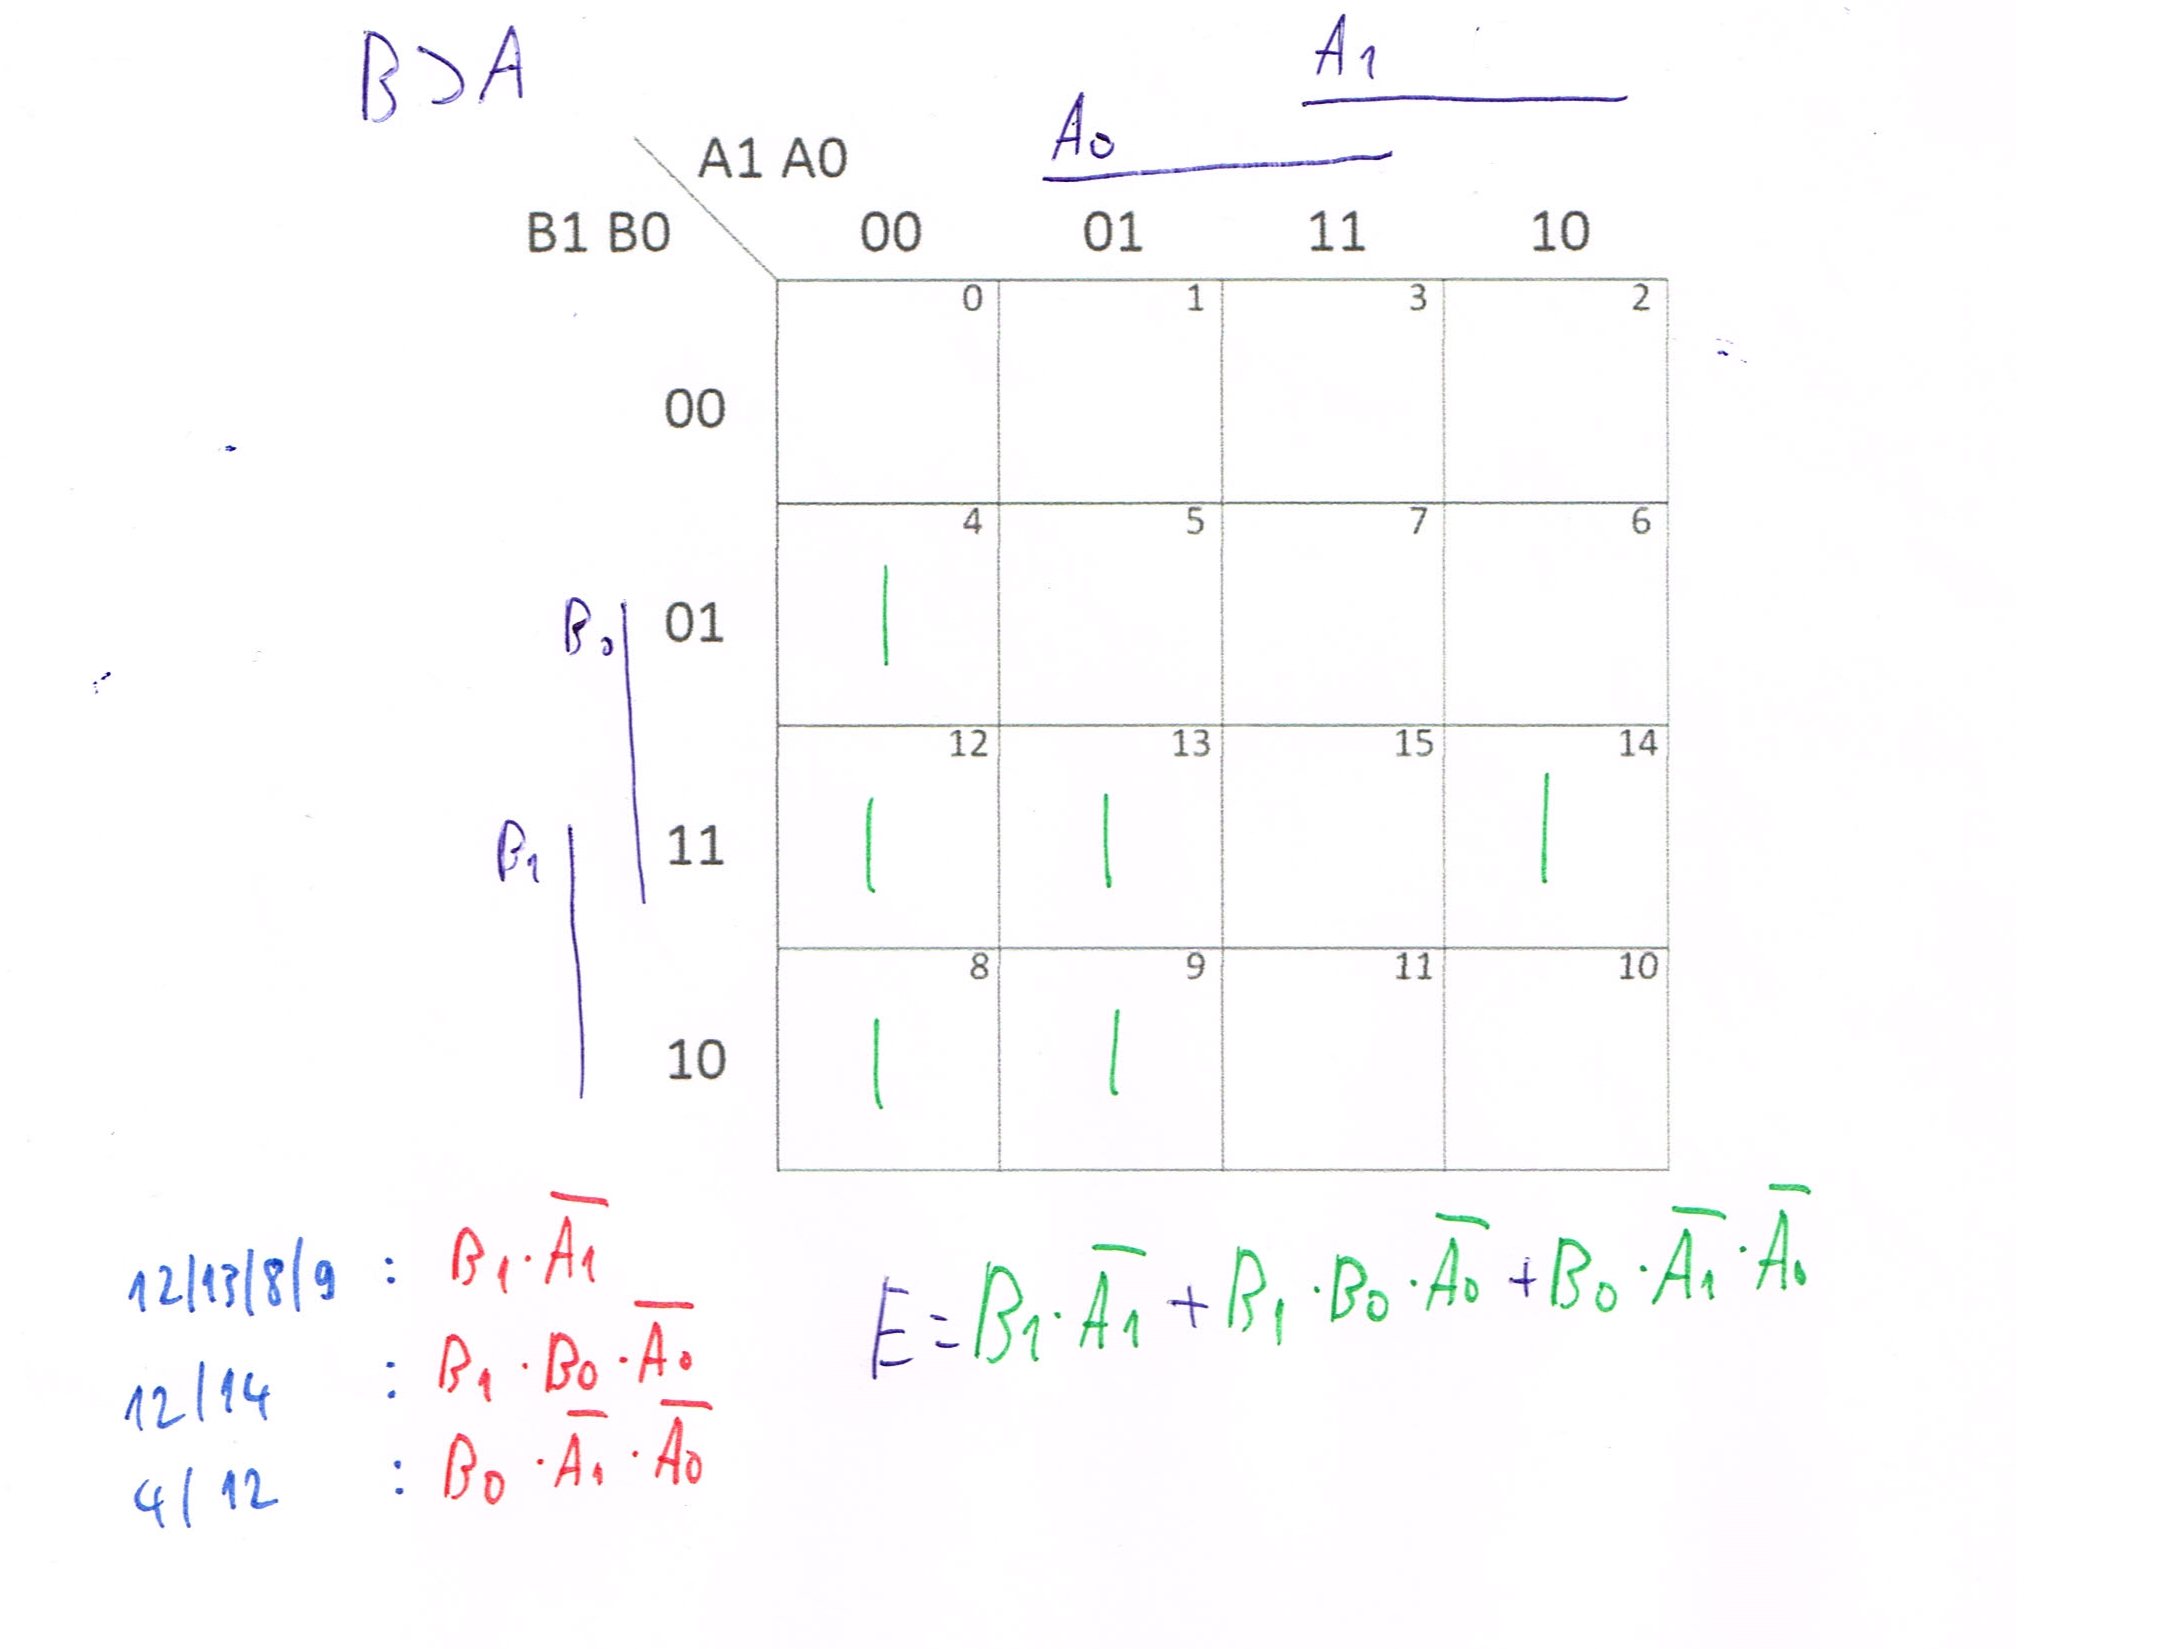 B>A
A1
A0
A1 A0
B1 B0 00 01 11 10
0 1 3 2
00
4 5 7 6
B0 01 1
12 13 15 14
B1 11 1 1 1
8 9 11 10
10 1 1
12/13/8/9 : B1·A̅1̅
12/14 : B1·B0·A̅0̅
4/12 : B0·A̅1̅·A̅0̅
E=B1·A̅1̅+B1·B0·A̅0̅+B0·A̅1̅·A̅0̅